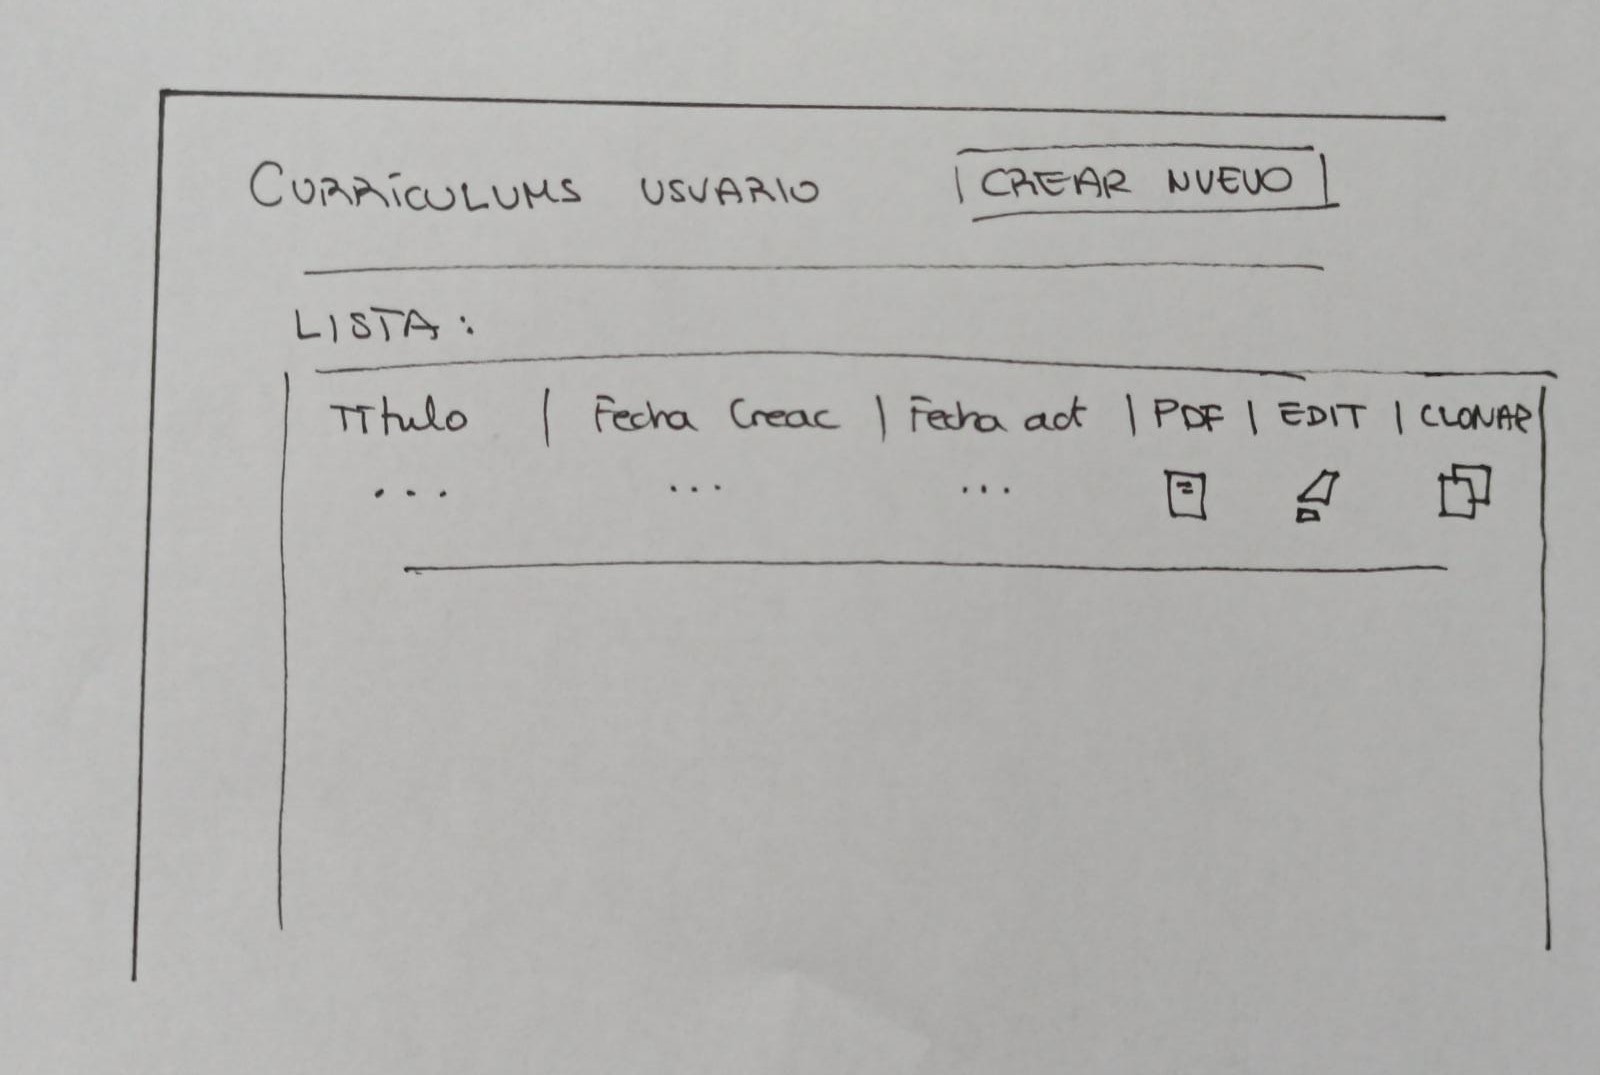 CURRÍCULUMS USUARIO CREAR NUEVO
LISTA :
Título | Fecha Creac | Fecha act | PDF | EDIT | CLONAR
... ... ...